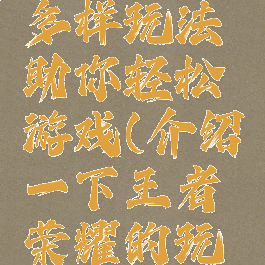 多样玩法
助你轻松
游戏(介绍
一下王者
荣耀的玩